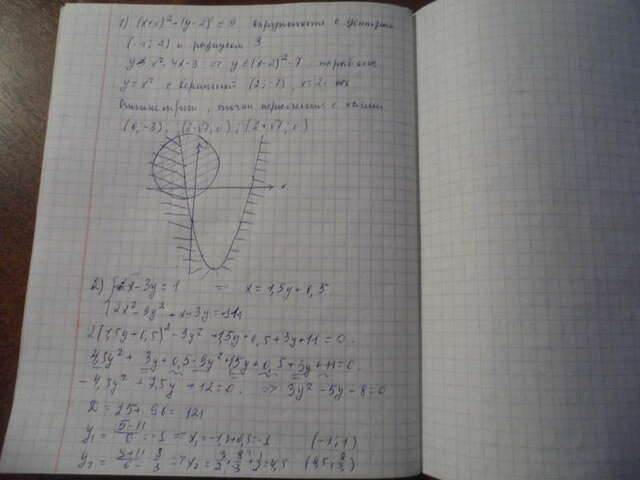 1) (x+1)²+(y-2)² = 9 окружность с центром
(-1; 2) и радиусом 3
y = x²-4x-3 => y=(x-2)²-7 парабола
y=x² с вершиной (2;-7), x=2 - ось
симметрии, точки пересечения с осями
(0;-3); (2-√7; 0); (2+√7; 0)
x
2) {2x-3y=1 => x=1,5y+0,5
{2x²-3y²+x+3y=-11
2(1,5y+0,5)²-3y²+1,5y+0,5+3y+11=0.
4,5y²+3y+0,5-9y²+1,5y+0,5+3y+11=0.
-4,5y²+7,5y+12=0. => 3y²-5y-8=0
D=25+96=121
y₁ = (5-11)/6 = -1 => x₁=-1,5+0,5=-1 (-1;-1)
y₂ = (5+11)/6 = 8/3 => x₂ =